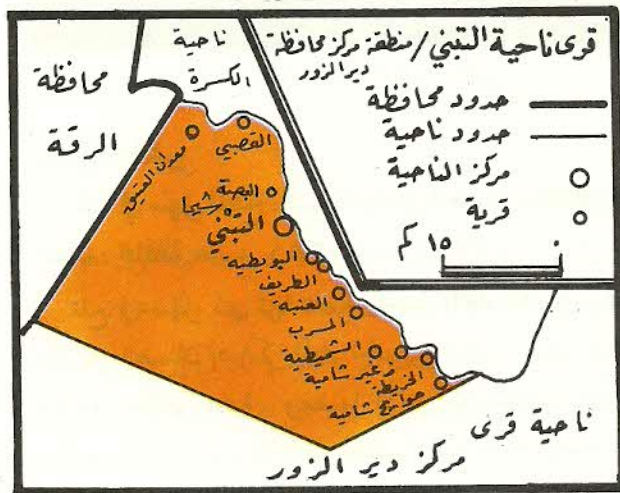 قرى ناحية التبني / منطقة مركز محافظة
دير الزور
حدود محافظة
حدود ناحية
مركز الناحية
قرية
١٥ كم
٠
ناحية
الكسرة
محافظة
الرقة
معدان العتيق
القصبي
البصة
شيحا
التبني
البويطية
الطريف
العنبة
المسرب
الشميطية
زغير شامية
الخريطة
حوايج شامية
ناحية قرى
مركز دير الزور